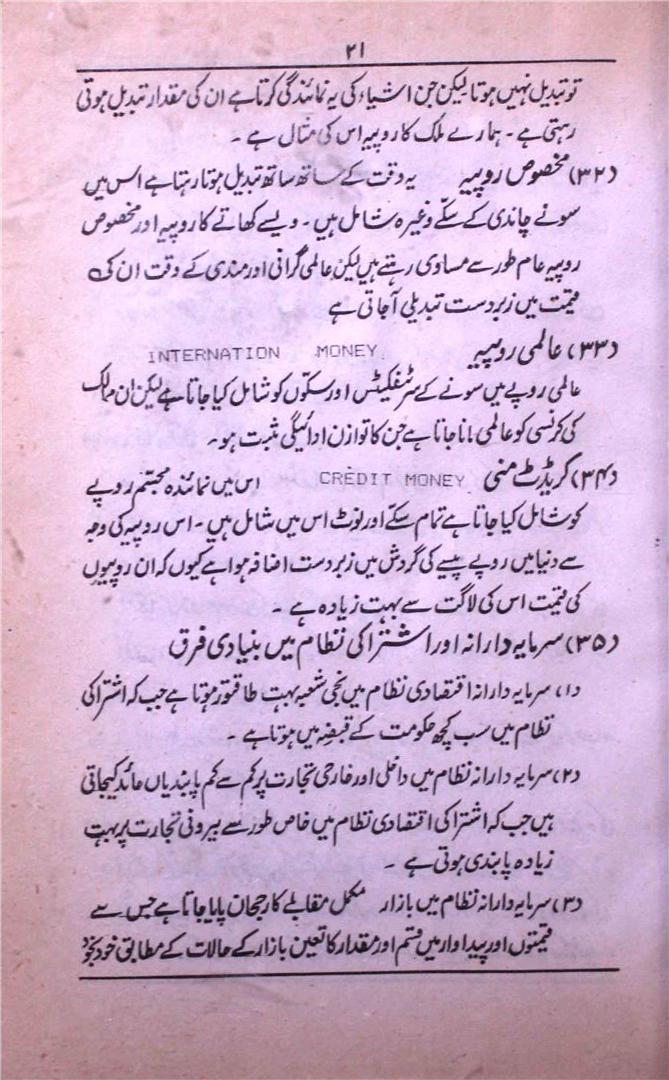 ۲۱
تو تبدیل نہیں ہوتا لیکن جن اشیاء کی یہ نمائندگی کرتا ہے ان کی مقدار تبدیل ہوتی
رہتی ہے ۔ ہمارے ملک کا روپیہ اس کی مثال ہے ۔
(۳۲) مخصوص روپیہ یہ وقت کے ساتھ ساتھ تبدیل ہوتا رہتا ہے اس میں
سونے چاندی کے سکّے وغیرہ شامل ہیں ۔ ویسے کھاتے کا روپیہ اور مخصوص
روپیہ عام طور سے مساوی رہتے ہیں لیکن عالمی گرانی اور مندی کے وقت ان کی
قیمت میں زبردست تبدیلی آجاتی ہے
(۳۳) عالمی روپیہ INTERNATION MONEY.
عالمی روپے میں سونے کے سرٹیفکیٹس اور سکوں کو شامل کیا جاتا ہے لیکن ان ممالک
کی کرنسی کو عالمی مانا جاتا ہے جن کا توازن ادائیگی مثبت ہو ۔
(۳۴) کریڈٹ منی CREDIT MONEY. اس میں نمائندہ مجسّم روپے
کو شامل کیا جاتا ہے تمام سکّے اور نوٹ اس میں شامل ہیں ۔ اس روپیہ کی وجہ
سے دنیا میں روپے پیسے کی گردش میں زبردست اضافہ ہوا ہے کیوں کہ ان روپیوں
کی قیمت اس کی لاگت سے بہت زیادہ ہے ۔
(۳۵) سرمایہ دارانہ اور اشتراکی نظام میں بنیادی فرق
(۱) سرمایہ دارانہ اقتصادی نظام میں نجی شعبہ بہت طاقتور ہوتا ہے جب کہ اشتراکی
نظام میں سب کچھ حکومت کے قبضہ میں ہوتا ہے ۔
(۲) سرمایہ دارانہ نظام میں داخلی اور خارجی تجارت پر کم سے کم پابندیاں عائد کیجاتی
ہیں جب کہ اشتراکی اقتصادی نظام میں خاص طور سے بیرونی تجارت پر بہت
زیادہ پابندی ہوتی ہے ۔
(۳) سرمایہ دارانہ نظام میں بازار مکمل مقابلے کا رجحان پایا جاتا ہے جس سے
قیمتوں اور پیداوار میں قسم اور مقدار کا تعین بازار کے حالات کے مطابق خود بخود